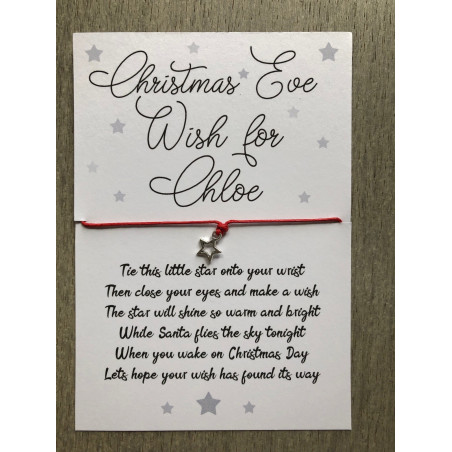 Christmas Eve
Wish for
Chloe
Tie this little star onto your wrist
Then close your eyes and make a wish
The star will shine so warm and bright
While Santa flies the sky tonight
When you wake on Christmas Day
Lets hope your wish has found its way